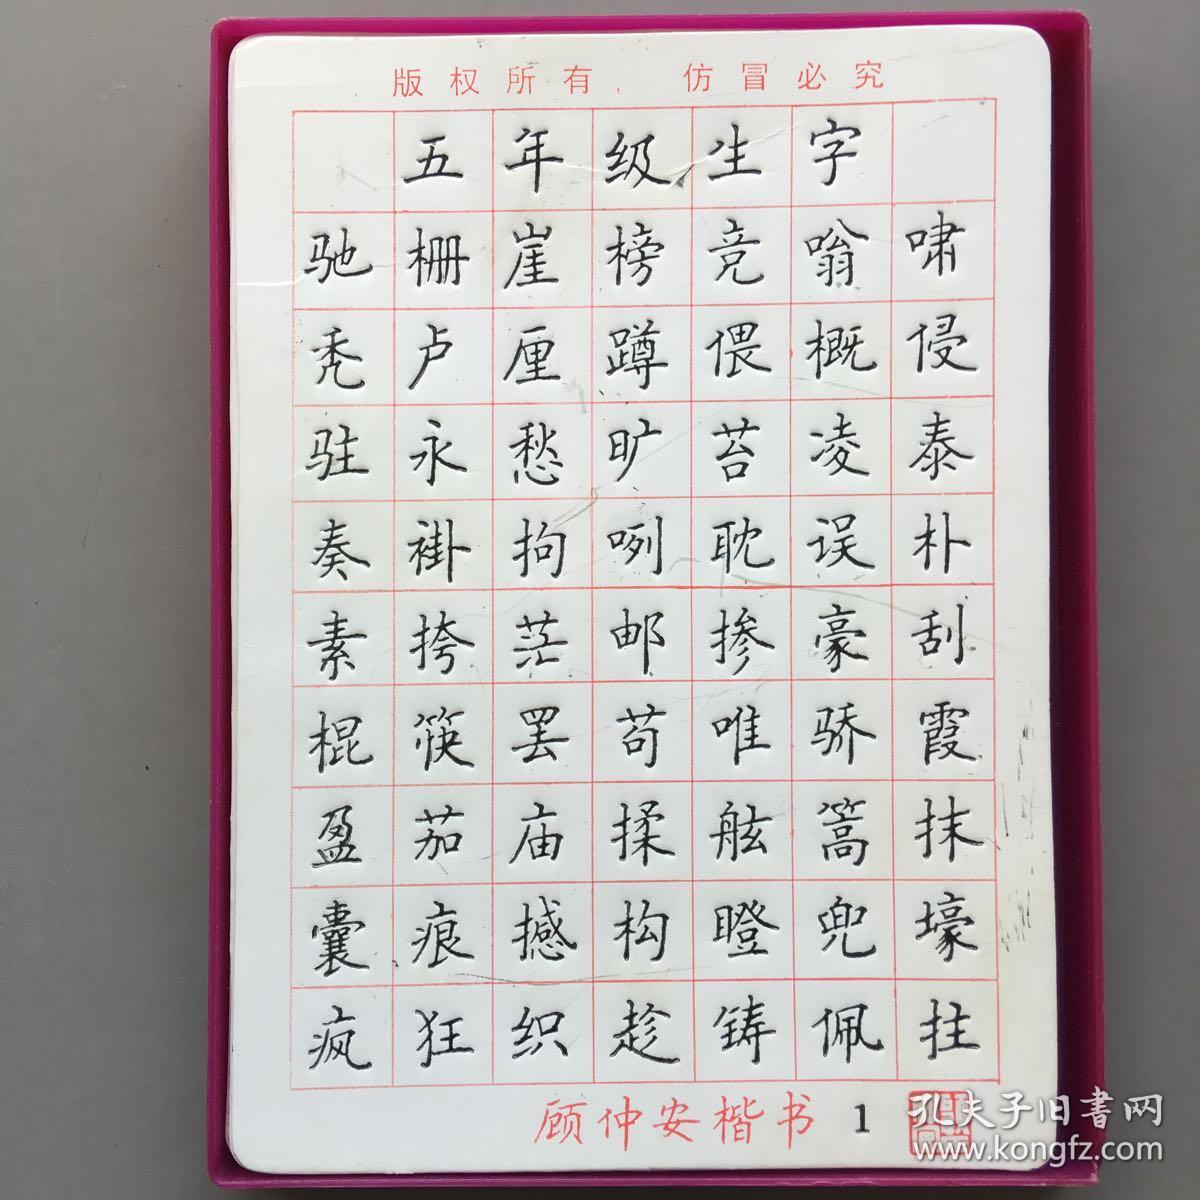 版权所有，仿冒必究
五年级生字
驰栅崖榜竞嗡啸
秃卢厘蹲偎概侵
驻永愁旷苔凌泰
奏褂拘咧耽误朴
素挎茫邮掺豪刮
棍筷罢苟唯骄霞
盈茄庙揉舷篙抹
囊痕撼构瞪兜壕
疯狂织趁铸佩拄
顾仲安楷书 1
孔夫子旧書网
www.kongfz.com